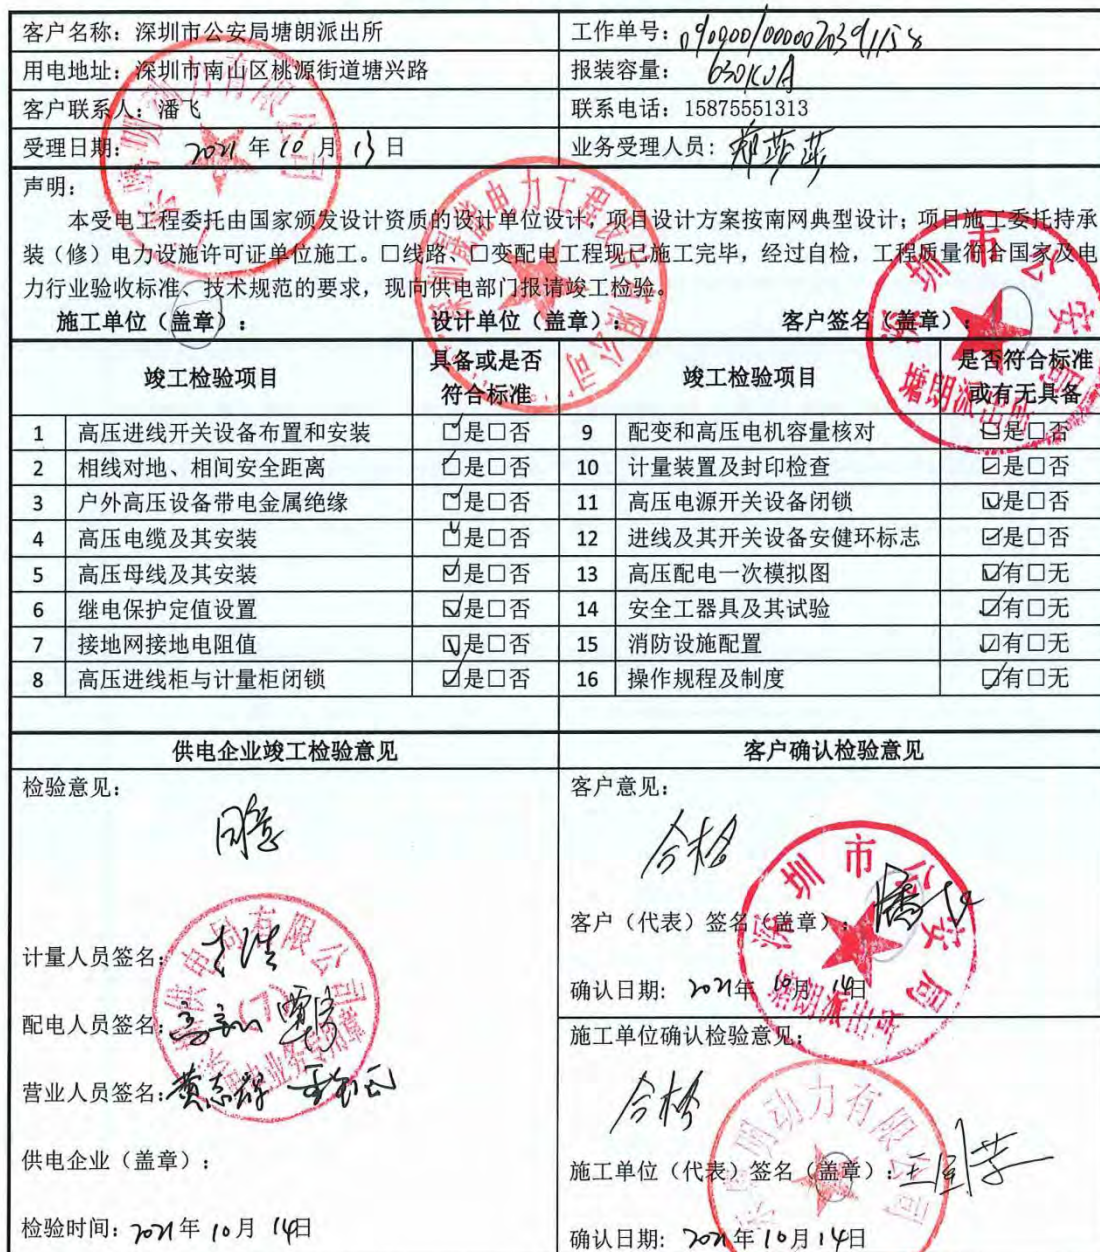 客户名称：深圳市公安局塘朗派出所
工作单号：
用电地址：深圳市南山区桃源街道塘兴路
报装容量：630KVA
客户联系人：潘飞
联系电话：15875551313
受理日期：2021年10月13日
业务受理人员：
声明：
本受电工程委托由国家颁发设计资质的设计单位设计，项目设计方案按南网典型设计；项目施工委托持承
装（修）电力设施许可证单位施工。□线路、□变配电工程现已施工完毕，经过自检，工程质量符合国家及电
力行业验收标准、技术规范的要求，现向供电部门报请竣工检验。
施工单位（盖章）： 设计单位（盖章）： 客户签名（盖章）：
深圳市公安局
塘朗派出所
竣工检验项目 具备或是否符合标准 竣工检验项目 是否符合标准或有无具备
1 高压进线开关设备布置和安装 ☑是□否 9 配变和高压电机容量核对 ☑是□否
2 相线对地、相间安全距离 ☑是□否 10 计量装置及封印检查 ☑是□否
3 户外高压设备带电金属绝缘 ☑是□否 11 高压电源开关设备闭锁 ☑是□否
4 高压电缆及其安装 ☑是□否 12 进线及其开关设备安健环标志 ☑是□否
5 高压母线及其安装 ☑是□否 13 高压配电一次模拟图 ☑有□无
6 继电保护定值设置 ☑是□否 14 安全工器具及其试验 ☑有□无
7 接地网接地电阻值 ☑是□否 15 消防设施配置 ☑有□无
8 高压进线柜与计量柜闭锁 ☑是□否 16 操作规程及制度 ☑有□无
供电企业竣工检验意见 客户确认检验意见
检验意见：
同意
计量人员签名：
配电人员签名：
营业人员签名：黄志辉
供电企业（盖章）：
检验时间：2021年10月14日
客户意见：
合格
客户（代表）签名（盖章）：潘飞
深圳市公安局
塘朗派出所
确认日期：2021年10月14日
施工单位确认检验意见：
合格
施工单位（代表）签名（盖章）：
确认日期：2021年10月14日